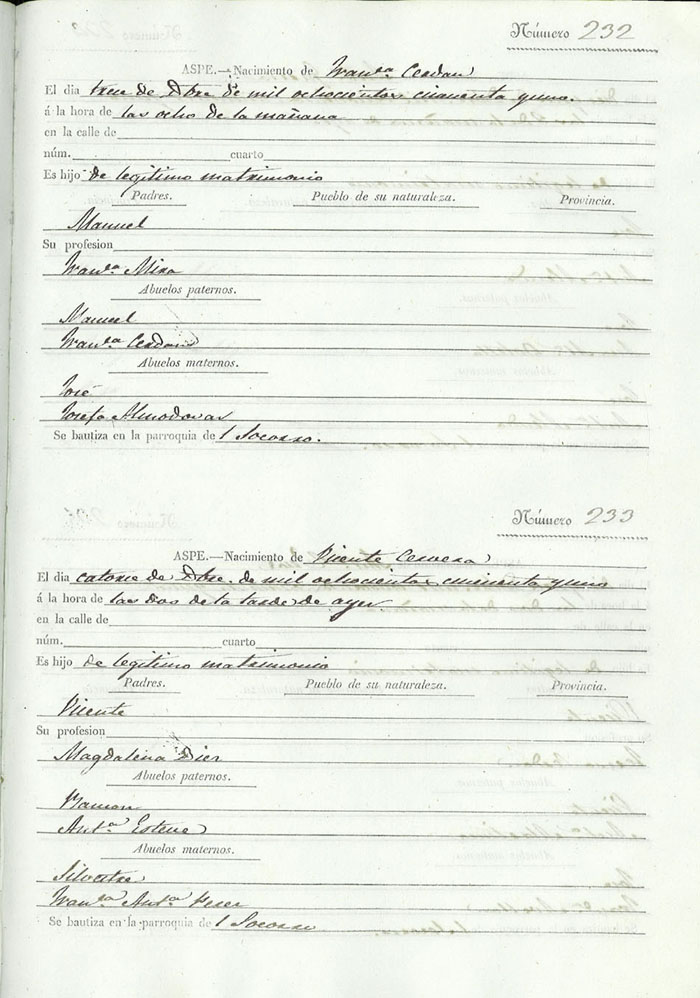 Número 232
ASPE.—Nacimiento de Fran.ca Cerdan
El dia trece de Dbre de mil ochocientos cincuenta y uno.
á la hora de las ocho de la mañana
en la calle de
núm. cuarto
Es hijo de legitimo matrimonio
Padres. Pueblo de su naturaleza. Provincia.
Manuel
Su profesion
Fran.ca Mira
Abuelos paternos.
Manuel
Fran.ca Cerdan
Abuelos maternos.
José
Josefa Almodovar
Se bautiza en la parroquia de l Socorro.
Número 233
ASPE.—Nacimiento de Vicente Cervera
El dia catorce de Dbre. de mil ochocientos cincuenta y uno
á la hora de las dos de la tarde de ayer
en la calle de
núm. cuarto
Es hijo de legitimo matrimonio
Padres. Pueblo de su naturaleza. Provincia.
Vicente
Su profesion
Magdalena
Abuelos paternos.
Ramon
Ant.a Esteve
Abuelos maternos.
Silvestre
Fran.ca Ant.a
Se bautiza en la parroquia de l Socorro